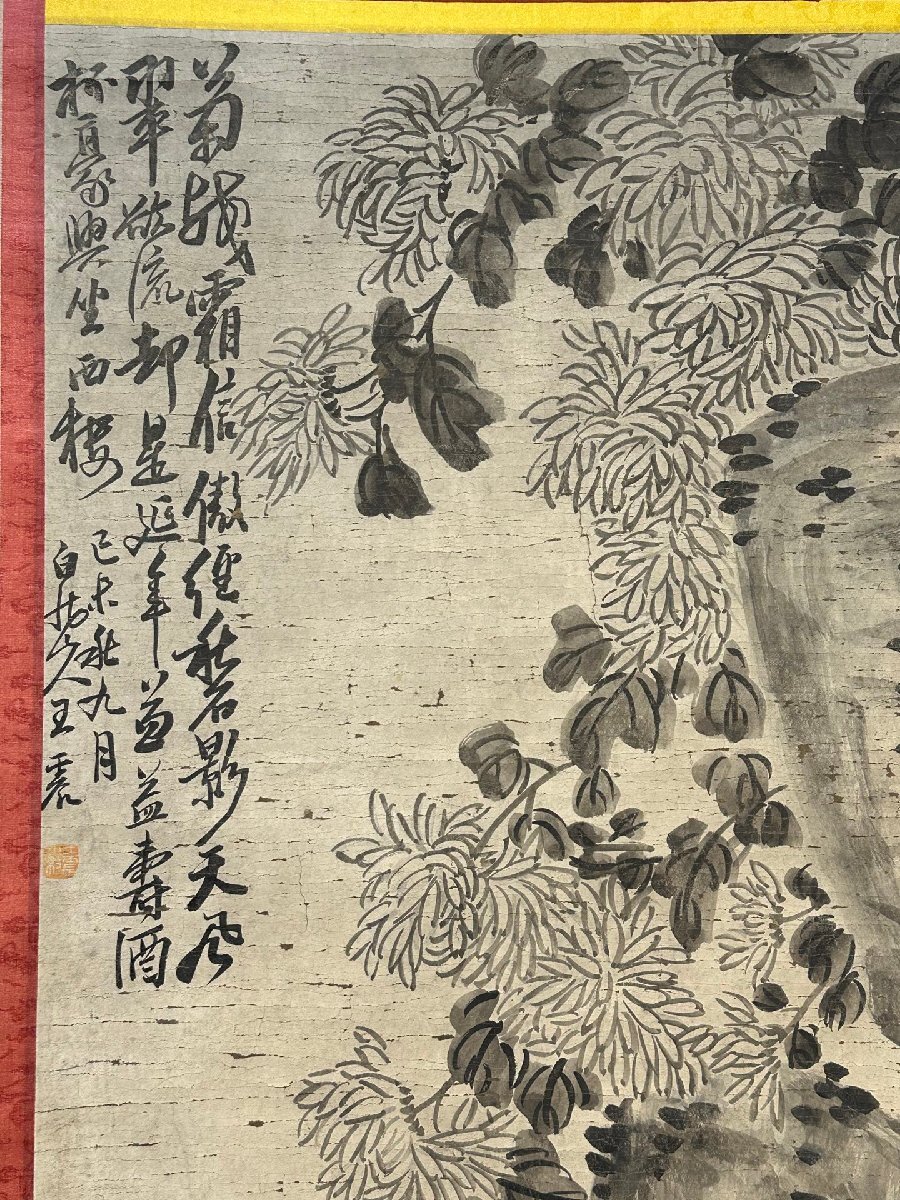 菊残霜信傲徑秋碧影天風
翠欲流却是延年益益壽酒
杯直豪興坐西樓
己未秋九月
白龍山人王震